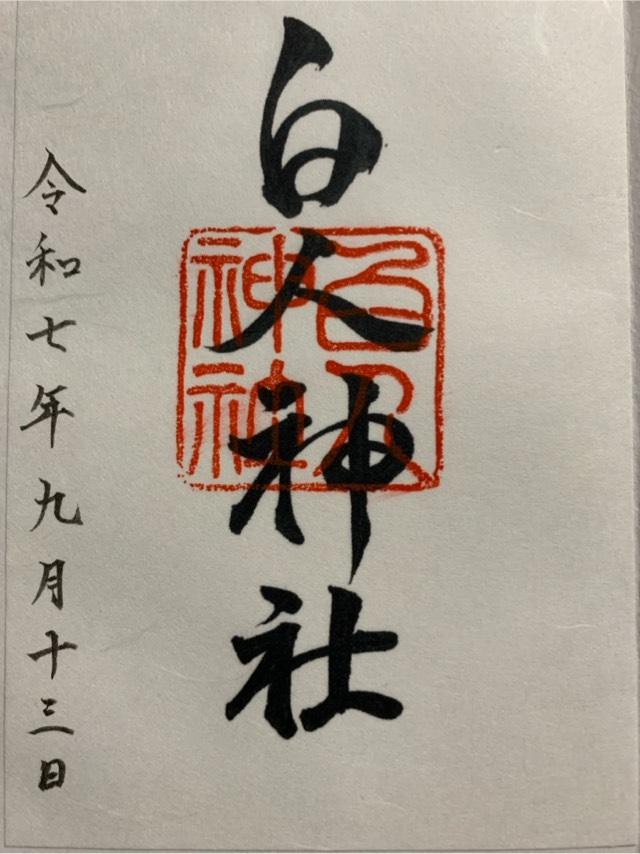 白人神社
白人神社
令和七年九月十三日